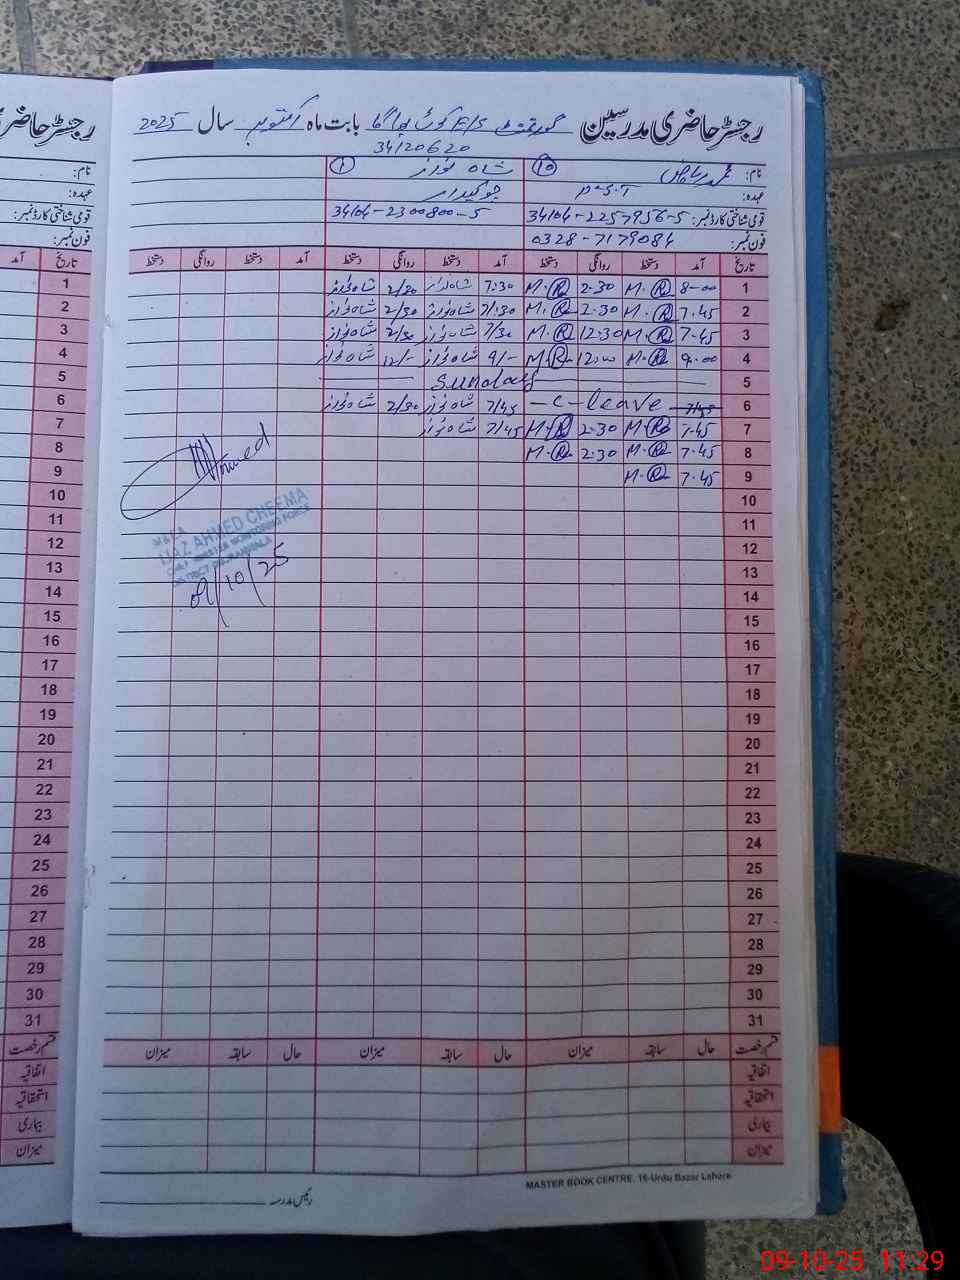 رجسٹر حاضری مدرسین گورنمنٹ E/S کوٹ بابت ماہ اکتوبر سال 2025
34120620
نام: محمد ریاض 15 شاہ نواز 1
عہدہ: چوکیدار
قومی شناختی کارڈ نمبر: 34104-2257956-5 34104-2300800-5
فون نمبر: 0328-7179084
تاریخ آمد دستخط روانگی دستخط آمد دستخط روانگی دستخط آمد دستخط روانگی دستخط
1 8-00 M.R 2.30 M.R 7:30 شاہ نواز 2/30 شاہ نواز
2 7.45 M.R 2.30 M.R 7/:30 شاہ نواز 2/30 شاہ نواز
3 7.45 M.R 12:30 M.R 7/30 شاہ نواز 2/30 شاہ نواز
4 9.00 M.R 12:00 M.R 9/- شاہ نواز 12/- شاہ نواز
5 Sunday
6 7/45 -C-leave 7/45 شاہ نواز 2/30 شاہ نواز
7 7.45 M.R 2.30 M.R 7/45 شاہ نواز
8 7.45 M.R 2.30 M.R
9 7.45 M.R
10
11
12
13
14
15
16
17
18
19
20
21
22
23
24
25
26
27
28
29
30
31
Ahmed
M&EA
IJAZ AHMED CHEEMA
CHIEF MINISTER MONITORING FORCE
DISTRICT GUJRANWALA
09/10/25
قسم رخصت حال سابقہ میزان حال سابقہ میزان حال سابقہ میزان
اتفاقیہ
استحقاقیہ
بیماری
میزان
MASTER BOOK CENTRE, 16-Urdu Bazar Lahore
رئیس مدرسہ
رجسٹر حاضری
نام:
عہدہ:
قومی شناختی کارڈ نمبر:
فون نمبر:
تاریخ آمد
1
2
3
4
5
6
7
8
9
10
11
12
13
14
15
16
17
18
19
20
21
22
23
24
25
26
27
28
29
30
31
قسم رخصت
اتفاقیہ
استحقاقیہ
بیماری
میزان
09-10-25 11:29